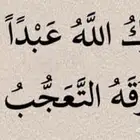 كُ اللَّهُ عَبْدًاً
قَهُ التَّعَجُّبُ